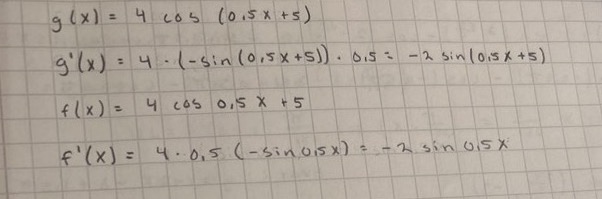 g(x) = 4 cos (0,5x+5)
g'(x) = 4 · (-sin(0,5x+5)) · 0,5 = -2 sin(0,5x+5)
f(x) = 4 cos 0,5x +5
f'(x) = 4 · 0,5 (-sin 0,5x) = -2 sin 0,5x